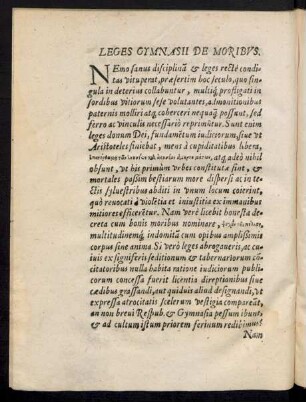 LEGES GYMNASII DE MORIBVS.
NEmo sanus disciplinā & leges rectè condi-
tas vituperat, præsertim hoc seculo, quo sin-
gula in deterius collabuntur, multiq́; profligati in
sordibus vitiorum sese volutantes, admonitionibus
paternis molliri atq; coherceri nequaq̃ possunt, sed
ferro ac vinculis necessario reprimuntur. Sunt enim
leges donum Dei, fundamētum iudiciorum, siue vt
Aristoteles sciuebat, mens à cupiditatibus libera,
atq; adeò nihil
obsunt, vt his primùm vrbes constitutæ sint, &
mortales passim bestiarum more dispersi ac in te-
ctis syluestribus abditi in vnum locum coierint,
quo reuocati à violētia et iniustitia ex immanibus
mitiores efficerētur. Nam verè licebit honesta de-
creta cum bonis moribus nominare,
multitudinemq́; indomitā cum opibus amplissimis
corpus sine anima Si verò leges abrogaueris, ac cu-
iuis ex signiferis seditionum & tabernariorum cō-
citatoribus nulla habita ratione iudiciorum publi-
corum concessa fuerit licentia direptionibus siue
cædibus grassandi, aut quiduis aliud designandi, vt
expressa atrocitatis scelerum vestigia compareāt,
an non breui Respub. & Gymnasia pessum ibunt
& ad cultum istum priorem ferinum redibimus?
Nam